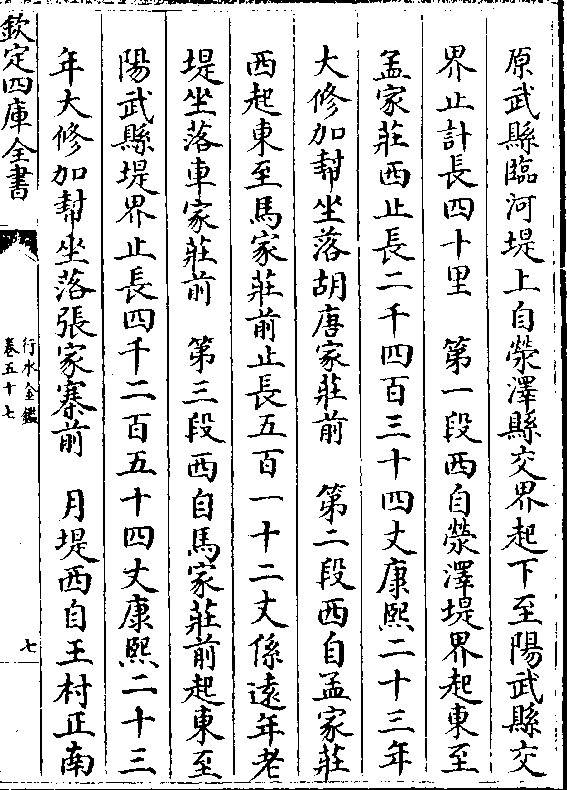 原武縣臨河堤上自滎澤縣交界起下至陽武縣交
界止計長四十里　第一段西自滎澤堤界起東至
孟家莊西止長二千四百三十四丈康熙二十三年
大修加幇坐落胡唐家莊前　第二段西自孟家莊
西起東至馬家莊前止長五百一十二丈係遠年老
堤坐落車家莊前　第三段西自馬家莊前起東至
陽武縣堤界止長四千二百五十四丈康熙二十三
年大修加幇坐落張家寨前　月堤西自王村正南
欽定四庫全書
行水金鑑
卷五十七
七